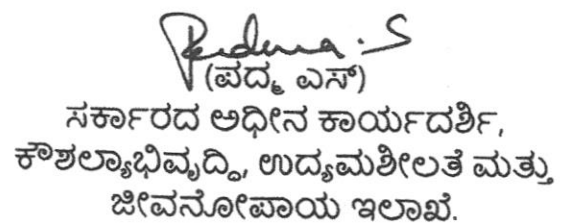 Padma.S
(ಪದ್ಮ ಎಸ್)
ಸರ್ಕಾರದ ಅಧೀನ ಕಾರ್ಯದರ್ಶಿ,
ಕೌಶಲ್ಯಾಭಿವೃದ್ದಿ, ಉದ್ಯಮಶೀಲತೆ ಮತ್ತು
ಜೀವನೋಪಾಯ ಇಲಾಖೆ.